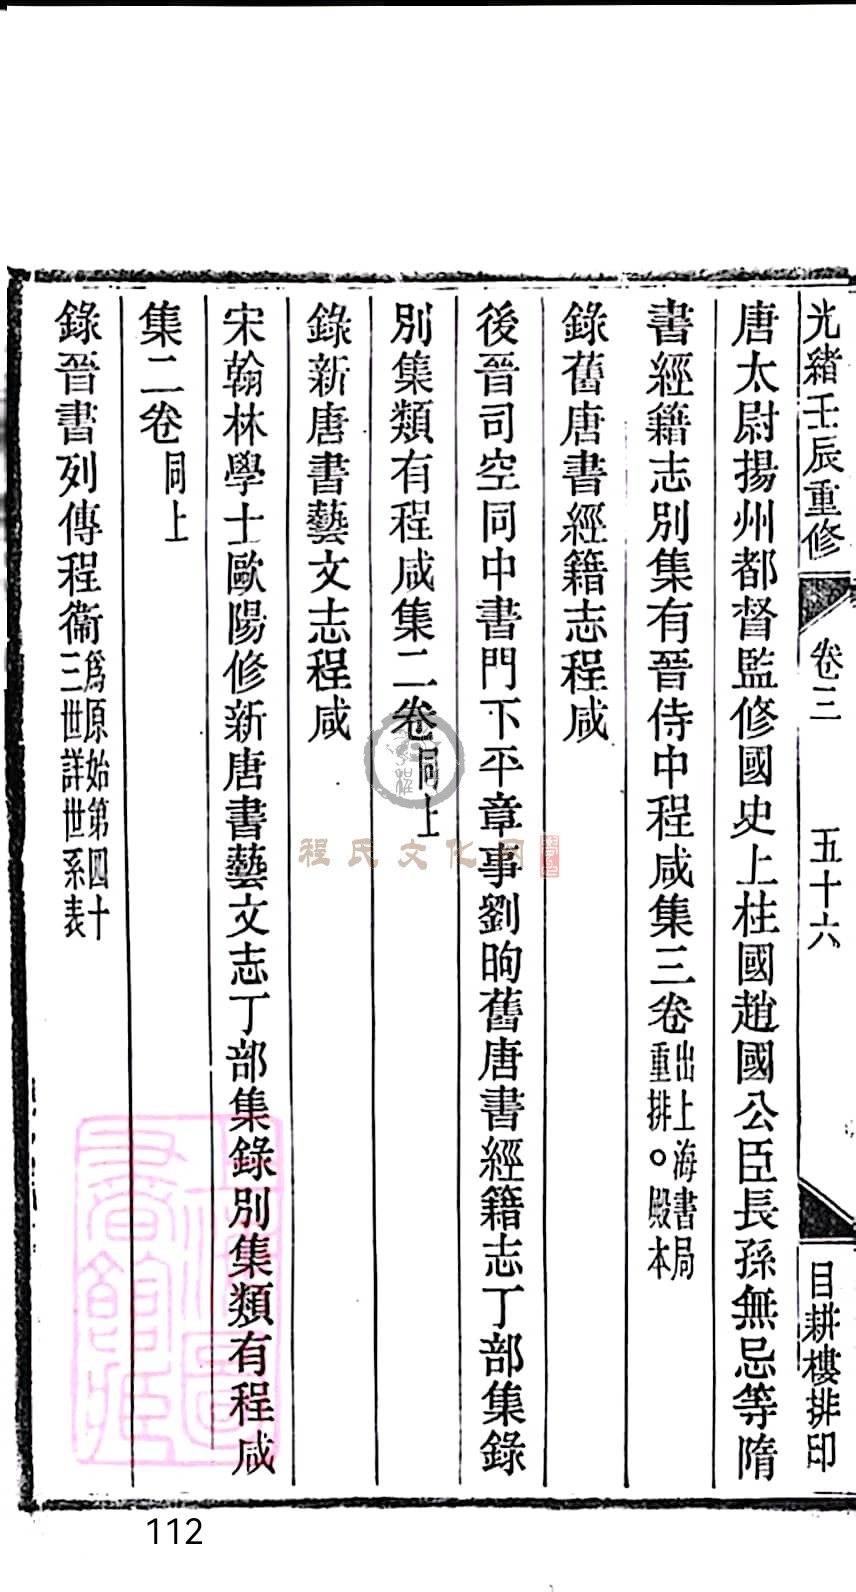 光緒壬辰重修
卷三
五十六
目耕樓排印
唐太尉揚州都督監修國史上柱國趙國公臣長孫無忌等隋
書經籍志別集有晉侍中程咸集三卷出上海書局重排。殿本
錄舊唐書經籍志程咸
後晉司空同中書門下平章事劉昫舊唐書經籍志丁部集錄
別集類有程咸集二卷同上
錄新唐書藝文志程咸
宋翰林學士歐陽修新唐書藝文志丁部集錄別集類有程咸
集二卷同上
錄晉書列傳程衞爲原始第四十三世詳世系表
程氏文化网
112